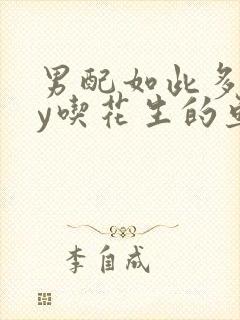 男配如此多
y喫花生的
李自成